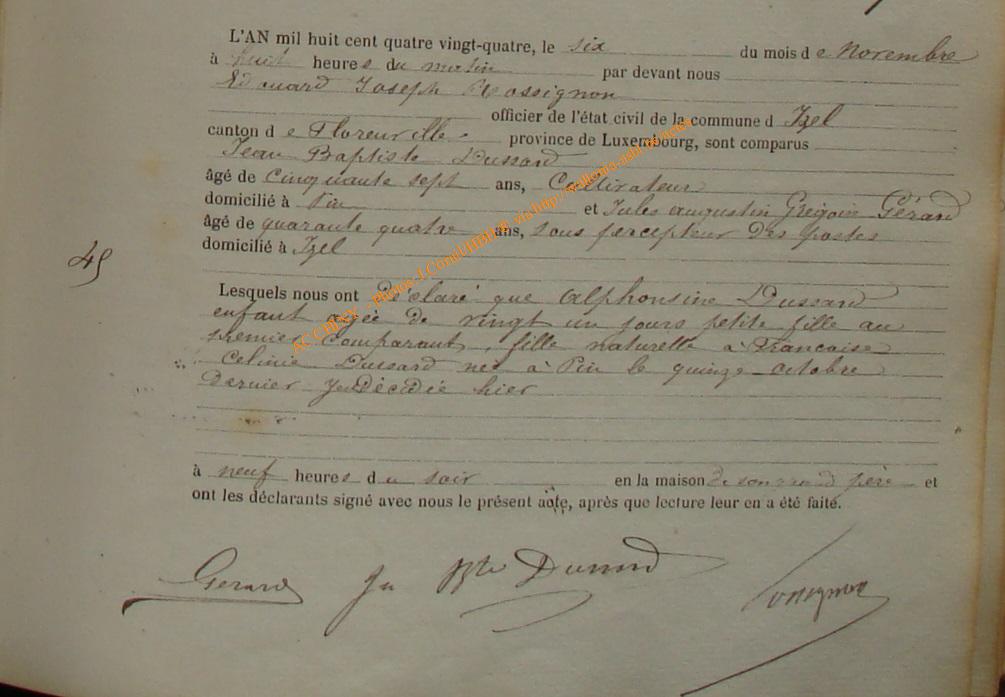 L'AN mil huit cent quatre vingt-quatre, le six du mois d e Novembre
à huit heures du matin par devant nous
Edouard Joseph Rossignon
officier de l'état civil de la commune d Izel
canton d e Florenville province de Luxembourg, sont comparus
Jean Baptiste Dussard
âgé de cinquante sept ans, Cultivateur
domicilié à Pin et Jules Augustin Grégoire Gérard
âgé de quarante quatre ans, sous percepteur des postes
domicilié à Izel
45
Lesquels nous ont déclaré que Alphonsine Dussard
enfant agée de vingt un jours petite fille au
premier Comparant, fille naturelle à Francoise
Celinie Dussard née à Pin le quinze octobre
dernier décédée hier
à neuf heures du soir en la maison de son grand père et
ont les déclarants signé avec nous le présent acte, après que lecture leur en a été faite.
Gerard Jn Bte Dussard Rossignon
ACCHINY - Photos J. Conn via http://wallonia-asbl.be/actes